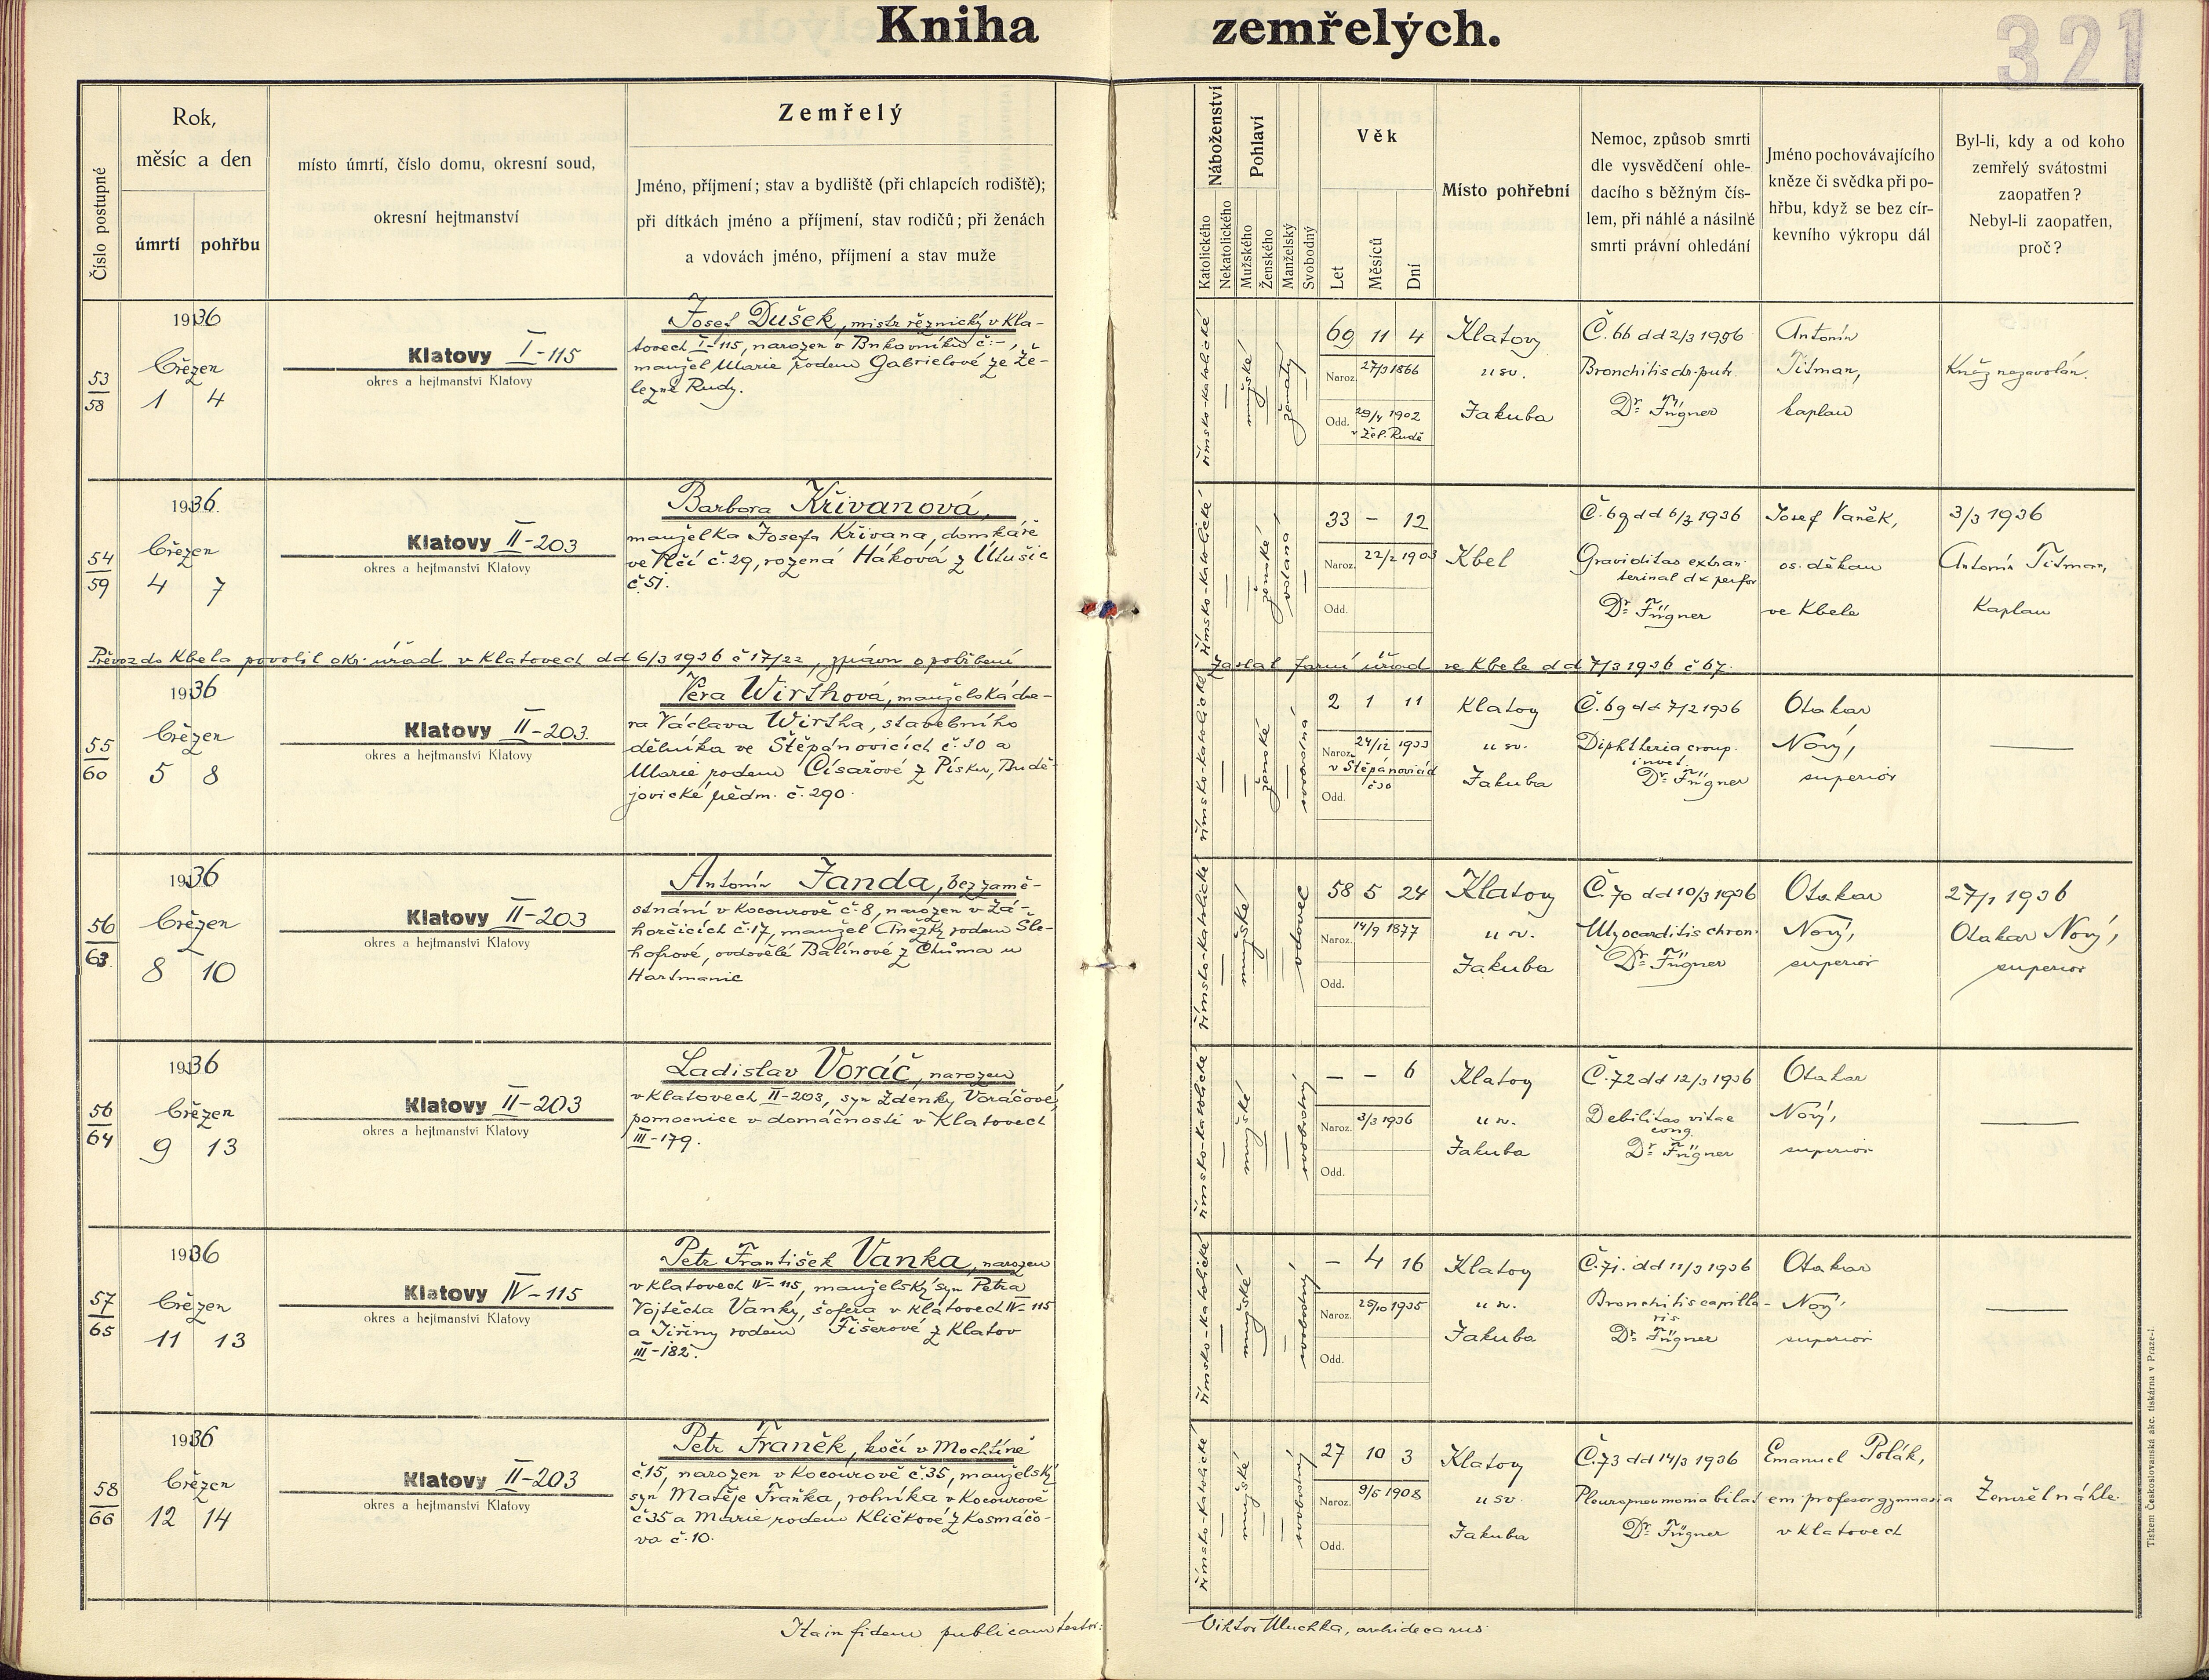 Kniha zemřelých.
321
Číslo postupné
Rok,
měsíc a den
úmrtí
pohřbu
místo úmrtí, číslo domu, okresní soud,
okresní hejtmanství
Zemřelý
Jméno, příjmení; stav a bydliště (při chlapcích rodiště);
při dítkách jméno a příjmení, stav rodičů; při ženách
a vdovách jméno, příjmení a stav muže
Náboženství
Katolického
Nekatolického
Pohlaví
Mužského
Ženského
Manželský
Svobodný
Věk
Let
Měsíců
Dní
Místo pohřební
Nemoc, způsob smrti
dle vysvědčení ohle-
dacího s běžným čís-
lem, při náhlé a násilné
smrti právní ohledání
Jméno pochovávajícího
kněze či svědka při po-
hřbu, když se bez cír-
kevního výkropu dál
Byl-li, kdy a od koho
zemřelý svátostmi
zaopatřen?
Nebyl-li zaopatřen,
proč?
53
58
1936
březen
1 4
Klatovy I-115
okres a hejtmanství Klatovy
Josef Dušek, mistr řeznický v Kla-
tovech I-115, narozen v č. -,
manžel Marie rodem Gabrielové ze Že-
lezné Rudy.
římsko-katolické
mužské
ženatý
69 11 4
Naroz. 27/3 1866
Odd. 29/4 1902
v Žel. Rudě
Klatovy
u sv.
Jakuba
Č. 66 dd 2/3 1936
Bronchitis chr. putr.
Dr. Fügner
Antonín
Titman,
kaplan
Kněz nezavolán.
54
59
1936.
březen
4 7
Klatovy II-203
okres a hejtmanství Klatovy
Barbora Křivanová,
manželka Josefa Křivana, domkáře
ve Vlčí č. 29, rozená Háková z Ulušic
č. 51.
římsko-katolické
ženské
vdaná
33 - 12
Naroz. 22/2 1903
Odd.
Kbel
Č. 69 dd 6/3 1936
Graviditas extrau
terinal dx perfor
Dr. Fügner
Josef Vaněk,
os. děkan
ve Kbele
3/3 1936
Antonín Titman,
Kaplan
Převoz do Kbela povolil okr. úřad v Klatovech dd 6/3 1936 č 17/22, zprávu o pohřbení
zaslal farní úřad ve Kbele dd 7/3 1936 č 67.
55
60
1936
březen
5 8
Klatovy II-203.
okres a hejtmanství Klatovy
Věra Wirthová, manželská dce-
ra Václava Wirtha, stavebního
dělníka ve Štěpánovicích č. 30 a
Marie rodem Císařové z Písku, Budě-
jovické předm. č. 290.
římsko-katolické
ženské
svobodná
2 1 11
Naroz. 24/12 1933
v Štěpánovicích
č 30
Odd.
Klatovy
u sv.
Jakuba
Č. 69 dd 7/2 1936
Diphtheria croup.
invet.
Dr. Fügner
Otakar
Nový,
superior
56
63
1936
březen
8 10
Klatovy II-203
okres a hejtmanství Klatovy
Antonín Janda, bez zamě-
stnání v Kocourově č. 8, narozen v Zá-
horčicích č. 17, manžel Anežky rodem Šle-
hofrové, ovdovělé Balínové z Chůma u
Hartmanic
římsko-katolické
mužské
vdovec
58 5 24
Naroz. 14/9 1877
Odd.
Klatovy
u sv.
Jakuba
Č. 70 dd 10/3 1936
Myocarditis chron.
Dr. Fügner
Otakar
Nový,
superior
27/1 1936
Otakar Nový,
superior
56
64
1936
březen
9 13
Klatovy II-203
okres a hejtmanství Klatovy
Ladislav Voráč, narozen
v Klatovech II-203, syn Zdenky Voráčové,
pomocnice v domácnosti v Klatovech
III-179.
římsko-katolické
mužské
svobodný
- - 6
Naroz. 3/3 1936
Odd.
Klatovy
u sv.
Jakuba
Č. 72 dd 12/3 1936
Debilitas vitae
cong.
Dr. Fügner
Otakar
Nový,
superior
57
65
1936
březen
11 13
Klatovy IV-115
okres a hejtmanství Klatovy
Petr František Vanka, narozen
v Klatovech IV-115, manželský syn Petra
Vojtěcha Vanky, šoféra v Klatovech IV-115
a Jiřiny rodem Fišerové z Klatov
III-182.
římsko-katolické
mužské
svobodný
- 4 16
Naroz. 25/10 1935
Odd.
Klatovy
u sv.
Jakuba
Č. 71. dd 11/3 1936
Bronchitis capilla-
ris
Dr. Fügner
Otakar
Nový,
superior
58
66
1936
březen
12 14
Klatovy II-203
okres a hejtmanství Klatovy
Petr Franěk, kočí v Mochtíně
č. 15, narozen v Kocourově č. 35, manželský
syn Matěje Fraňka, rolníka v Kocourově
č 35 a Marie rodem Kličkové z Kosmáčo-
va č. 10.
římsko-katolické
mužské
svobodný
27 10 3
Naroz. 9/5 1908
Odd.
Klatovy
u sv
Jakuba
Č. 73 dd 14/3 1936
Pleuropneumonia bilat
Dr. Fügner
Emanuel Polák,
em profesor gymnasia
v Klatovech
Zemřel náhle
Ita in fidem publicam testor:
Viktor Muchka, archidecanus
Tiskem Československá akc. tiskárna v Praze-I.